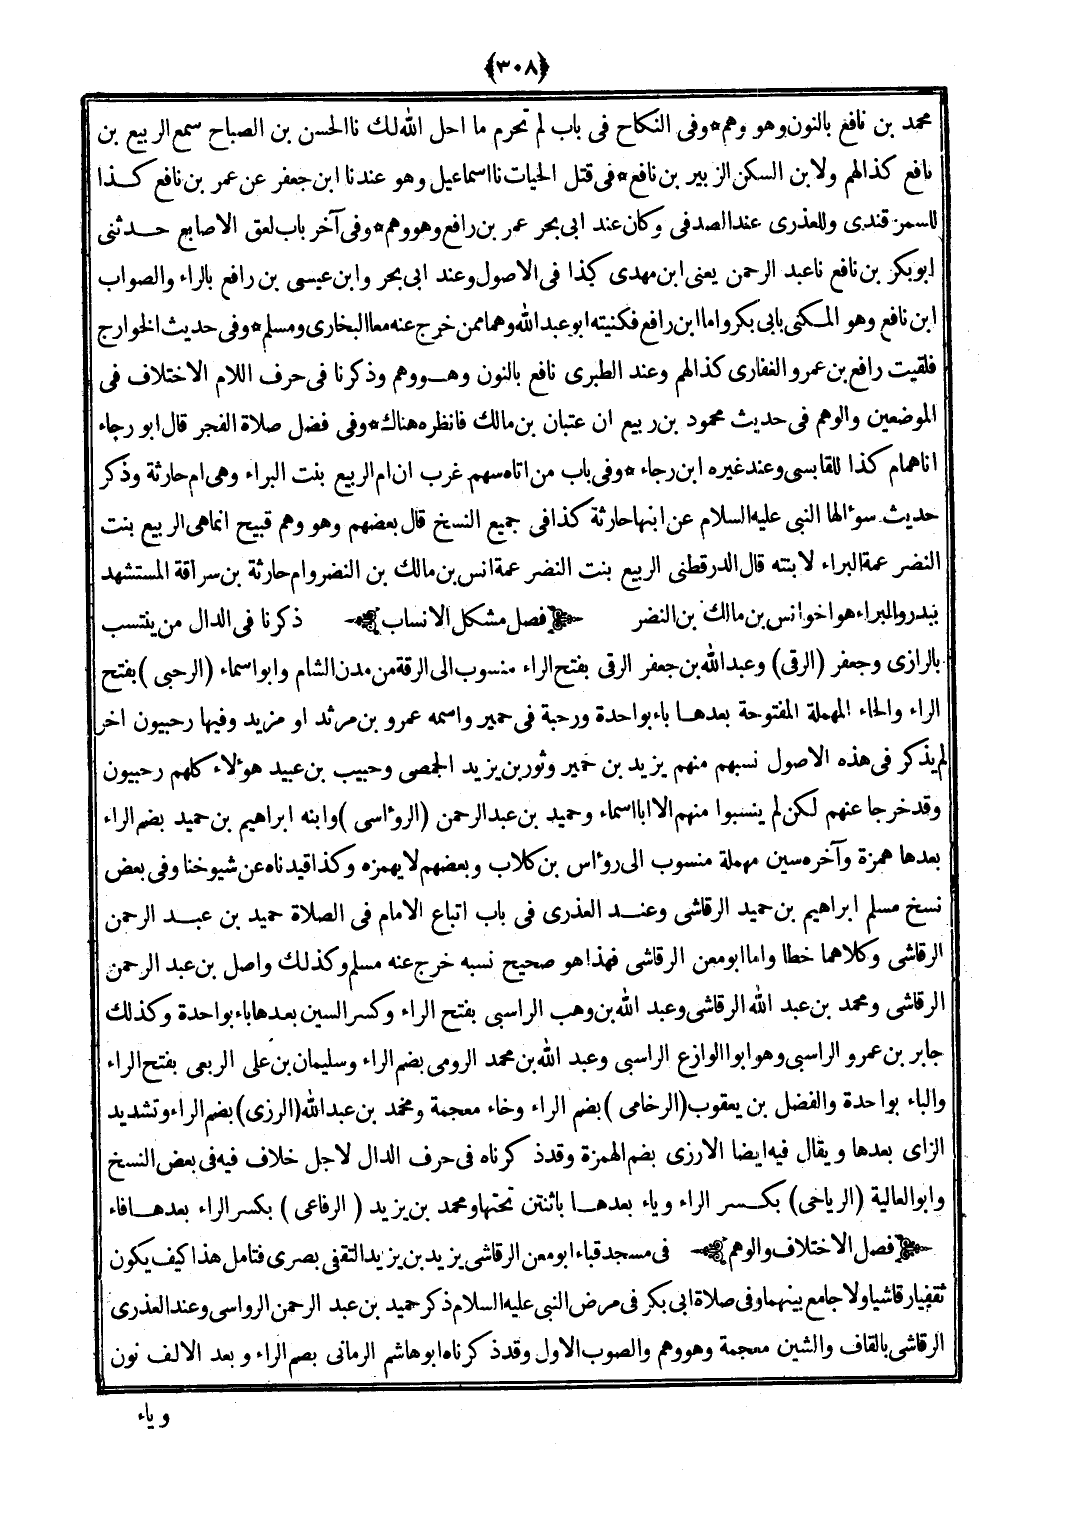 ﴿٣٠٨﴾
محمد بن نافع بالنون وهو وهم * وفى النكاح فى باب لم تحرم ما احل الله لك نا الحسن بن الصباح سمع الربيع بن
نافع كذا لهم ولابن السكن الزبير بن نافع * فى قتل الحيات نا اسماعيل وهو عندنا ابن جعفر عن عمر بن نافع كذا
للسمرقندى وللعذرى عند الصدفى وكان عند ابى بحر عمر بن رافع وهو وهم * وفى آخر باب لعق الاصابع حدثنى
ابو بكر بن نافع نا عبد الرحمن يعنى ابن مهدى كذا فى الاصول وعند ابى بحر وابن عيسى بن رافع بالراء والصواب
ابن نافع وهو المكنى بابى بكر واما ابن رافع فكنيته ابو عبد الله وهما ممن خرج عنه معا البخارى ومسلم * وفى حديث الخوارج
فلقيت رافع بن عمرو الغفارى كذا لهم وعند الطبرى نافع بالنون وهو وهم وذكرنا فى حرف اللام الاختلاف فى
الموضعين والوهم فى حديث محمود بن ربيع ان عتبان بن مالك فانظره هناك * وفى فضل صلاة الفجر قال ابو رجاء
انا همام كذا للقابسى وعند غيره ابن رجاء * وفى باب من اتاه سهم غرب ان ام الربيع بنت البراء وهى ام حارثة وذكر
حديث سوءالها النبى عليه السلام عن ابنها حارثة كذا فى جميع النسخ قال بعضهم وهو وهم قبيح انما هى الربيع بنت
النضر عمة البراء لا بنته قال الدرقطنى الربيع بنت النضر عمة انس بن مالك بن النضر وام حارثة بن سراقة المستشهد
ببدر والبراء هو اخو انس بن مالك بن النضر فصل مشكل الانساب ذكرنا فى الدال من ينتسب
بالرازى وجعفر (الرقى) وعبد الله بن جعفر الرقى بفتح الراء منسوب الى الرقة من مدن الشام وابو اسماء (الرحبى) بفتح
الراء والحاء المهملة المفتوحة بعدها باء بواحدة ورحبة فى حمير واسمه عمرو بن مرثد او مزيد وفيها رحبيون اخر
لم يذكر فى هذه الاصول نسبهم منهم يزيد بن خمير وثور بن يزيد الحمصى وحبيب بن عبيد هوءلاء كلهم رحبيون
وقد خرجا عنهم لكن لم ينسبوا منهم الا ابا اسماء وحميد بن عبد الرحمن (الروءاسى) وابنه ابراهيم بن حميد بضم الراء
بعدها همزة وآخره سين مهملة منسوب الى روءاس بن كلاب وبعضهم لا يهمزه وكذا قيدناه عن شيوخنا وفى بعض
نسخ مسلم ابراهيم بن حميد الرقاشى وعند العذرى فى باب اتباع الامام فى الصلاة حميد بن عبد الرحمن
الرقاشى وكلاهما خطا واما ابو معن الرقاشى فهذا هو صحيح نسبه خرج عنه مسلم وكذلك واصل بن عبد الرحمن
الرقاشى ومحمد بن عبد الله الرقاشى وعبد الله بن وهب الراسبى بفتح الراء وكسر السين بعدها باء بواحدة وكذلك
جابر بن عمرو الراسبى وهو ابو الوازع الراسبى وعبد الله بن محمد الرومى بضم الراء وسليمان بن على الربعى بفتح الراء
والباء بواحدة والفضل بن يعقوب (الرخامى) بضم الراء وخاء معجمة ومحمد بن عبد الله (الرزى) بضم الراء وتشديد
الزاى بعدها ويقال فيه ايضا الارزى بضم الهمزة وقد ذكرناه فى حرف الدال لاجل خلاف فيه فى بعض النسخ
وابو العالية (الرياحى) بكسر الراء وياء بعدها باثنتن تحتها ومحمد بن يزيد (الرفاعى) بكسر الراء بعدها فاء
فصل الاختلاف والوهم فى مسجد قباء ابو معن الرقاشى يزيد بن يزيد الثقفى بصرى فتامل هذا كيف يكون
ثقفيا رقاشيا ولا جامع بينهما وفى صلاة ابى بكر فى مرض النبى عليه السلام ذكر حميد بن عبد الرحمن الرواسى وعند العذرى
الرقاشى بالقاف والشين معجمة وهو وهم والصوب الاول وقد ذكرناه ابو هاشم الرمانى بصم الراء وبعد الالف نون
وياء